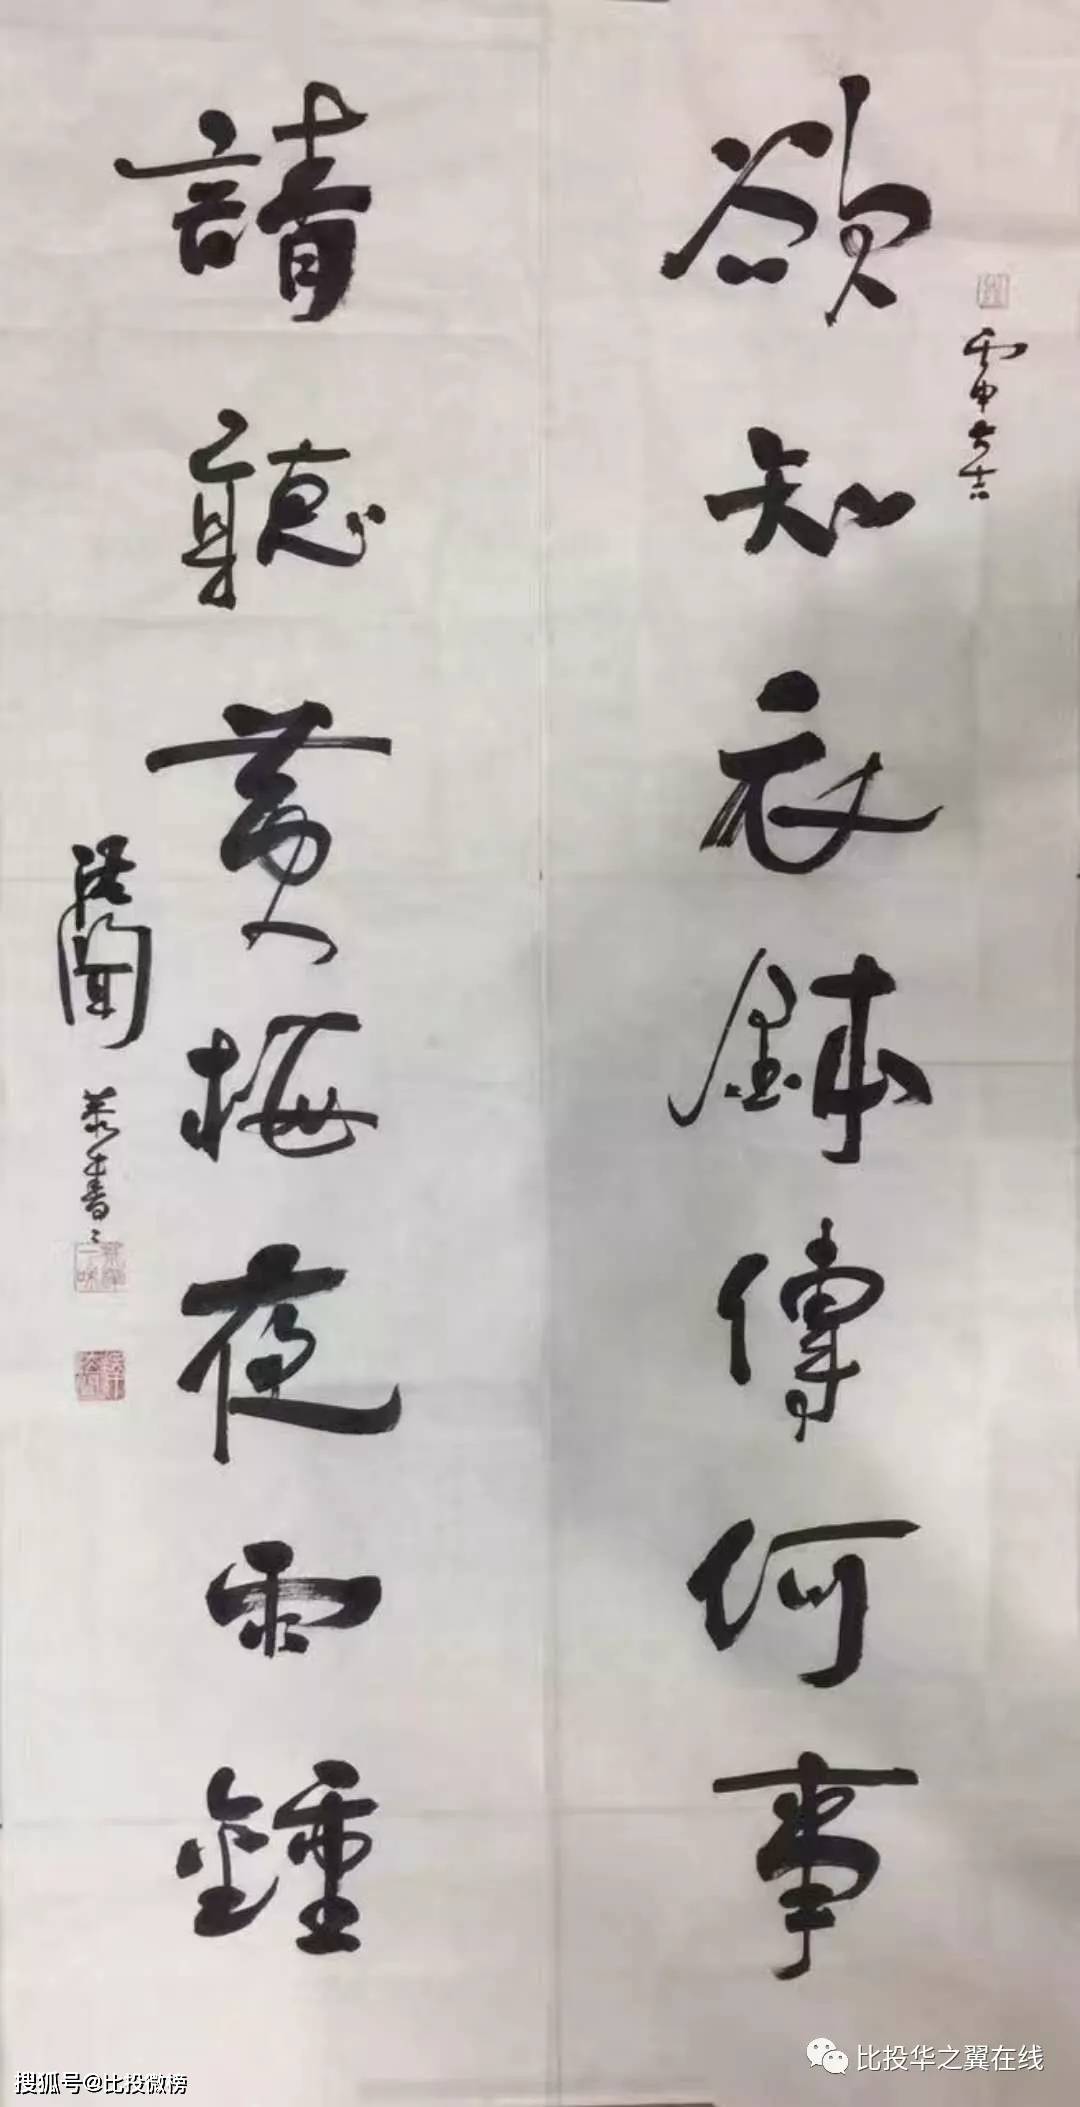 欲知衣鉢傳何事
請聽黄梅夜雨鐘
大吉
恭書
比投华之翼在线
搜狐号@比投微榜